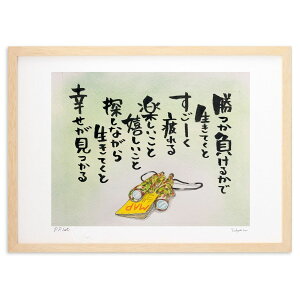 勝つか負けるかで
生きてくと
すごーく
疲れる
楽しいこと
嬉しいこと
探しながら
生きてくと
幸せが見つかる
MAP